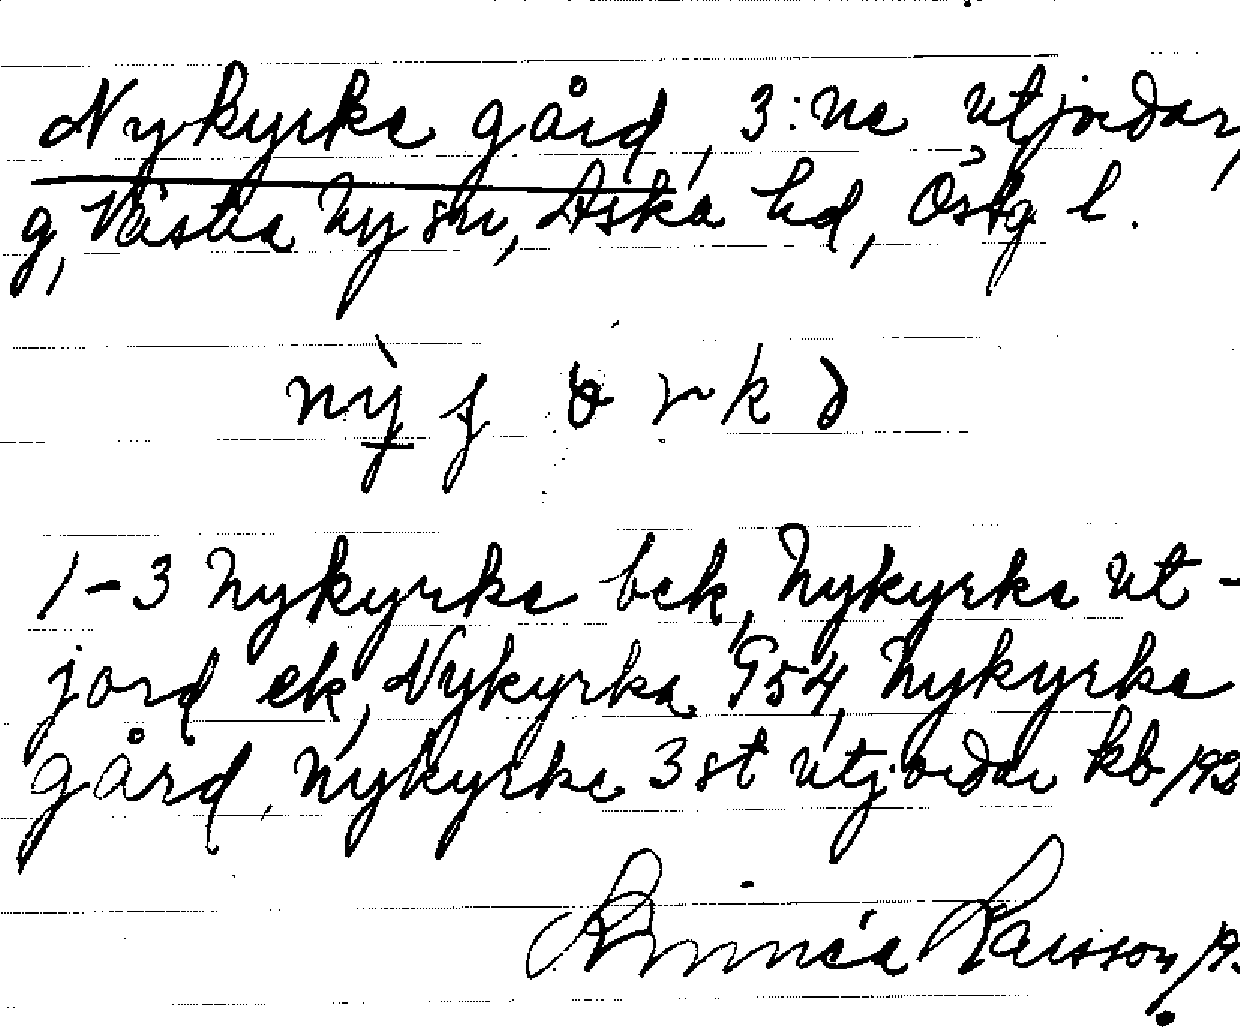 Nykyrka gård, 3:ne utjordar,
g, Västra Ny sn, Aska hd, Östg l.
1-3 Nykyrka bek, Nykyrka ut-
jord ek, Nykyrka G54, Nykyrka
gård, Nykyrka 3 st utjordar kb/192
Linnéa Larsson/19